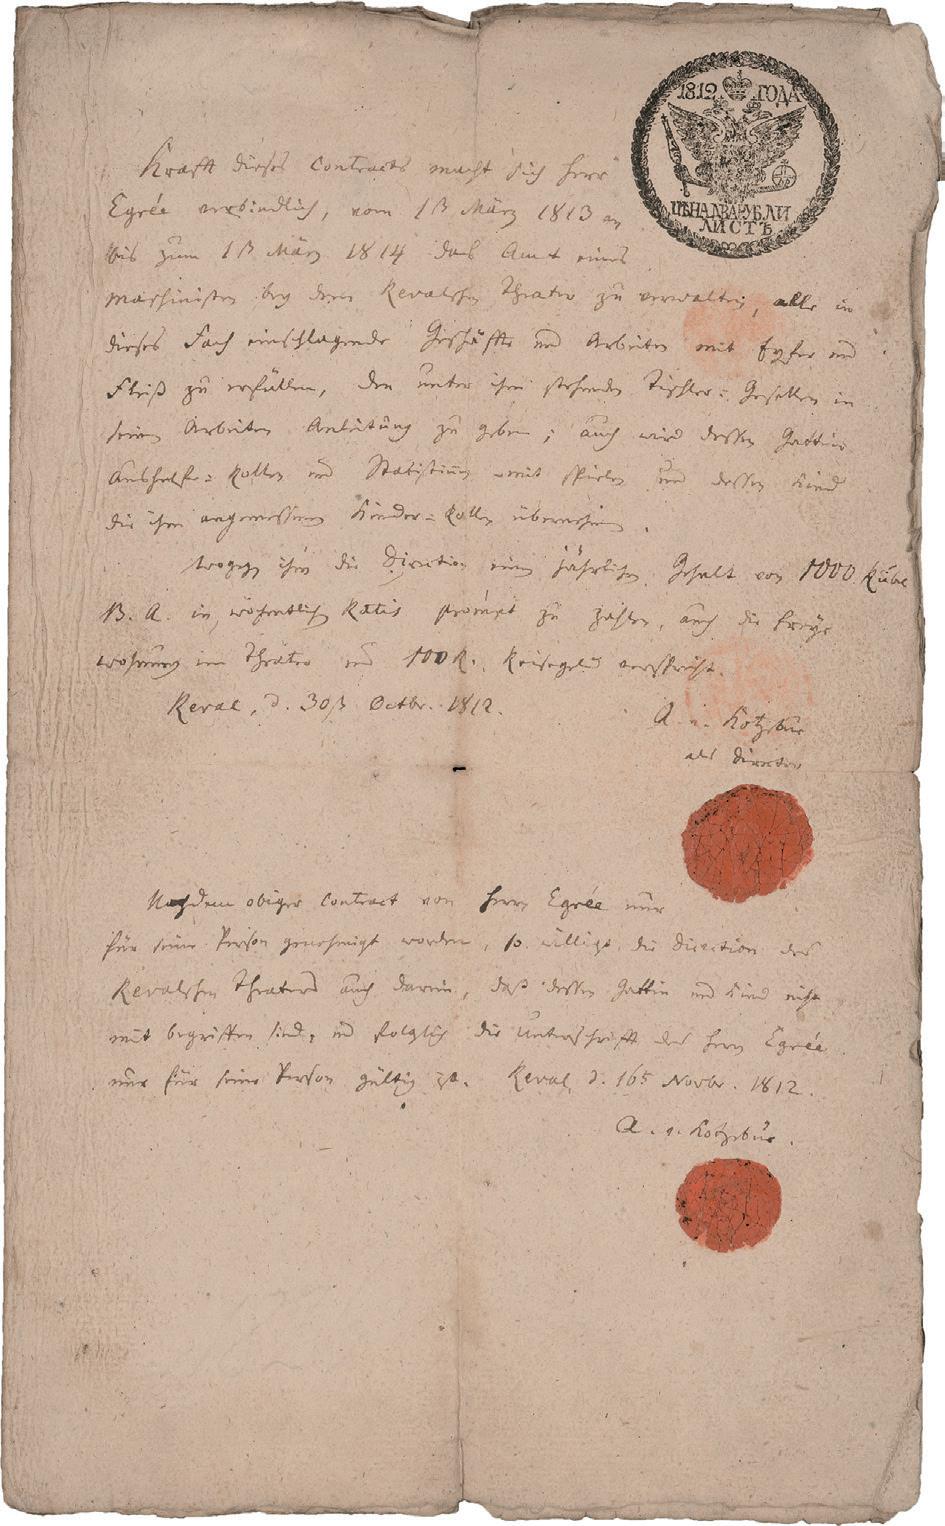 1812 ГОДА
ЦѢНА ДВА РУБЛИ
ЛИСТЪ
Kraft dieses Contracts macht sich Herr
Egrée verbindlich, vom 1ß März 1813 an
bis zum 1ß März 1814 das Amt eines
Maschinisten bey dem Revalschen Theater zu verwalten, alle in
dieses Fach einschlagende Geschäffte und Arbeiten mit Eyfer und
Fleiß zu erfüllen, den unter ihm stehenden Tischler-Gesellen in
seinen Arbeiten Anleitung zu geben; auch wird dessen Gattin
Aushelfe-Rollen und Statistinnen mit spielen und dessen Kind
die ihm angemessenen Kinder-Rollen übernehmen.
Wogegen ihm die Direction einen jährlichen Gehalt von 1000 Rubel
B. A. in wöchentlich Ratis prompt zu zahlen, auch die freye
Wohnung im Theater und 100 R. Reisegeld verspricht.
Reval, d. 30ß Octbr. 1812.
A. v. Kotzebue
als Director
Nachdem obiger Contract von Herrn Egrée nur
für seine Person genehmigt worden, so willigt die Direction des
Revalschen Theaters auch darein, daß dessen Gattin und Kind nicht
mit begriffen sind, und folglich die Unterschrift des Herrn Egrée
nur für seine Person gültig ist. Reval, d. 16ß Novbr. 1812.
A. v. Kotzebue.